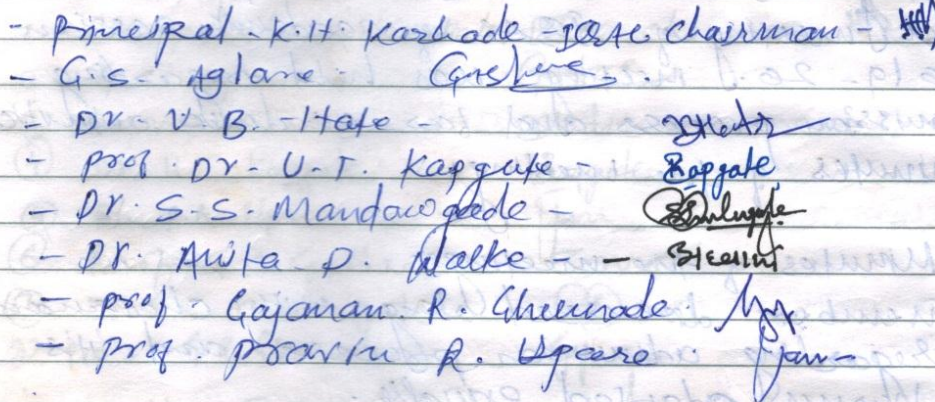 - Principal - K.H. Karhade - IQAC chairman -
- G.S. Aglawe.
- Dr. V. B. Hate -
- prof. Dr. U.T. Kapgate - Kapgate
- Dr. S.S. Mandawgade -
- Dr. Anita D. Walke -
- prof - Gajanan R.
- prof. Pravin R. Ugare